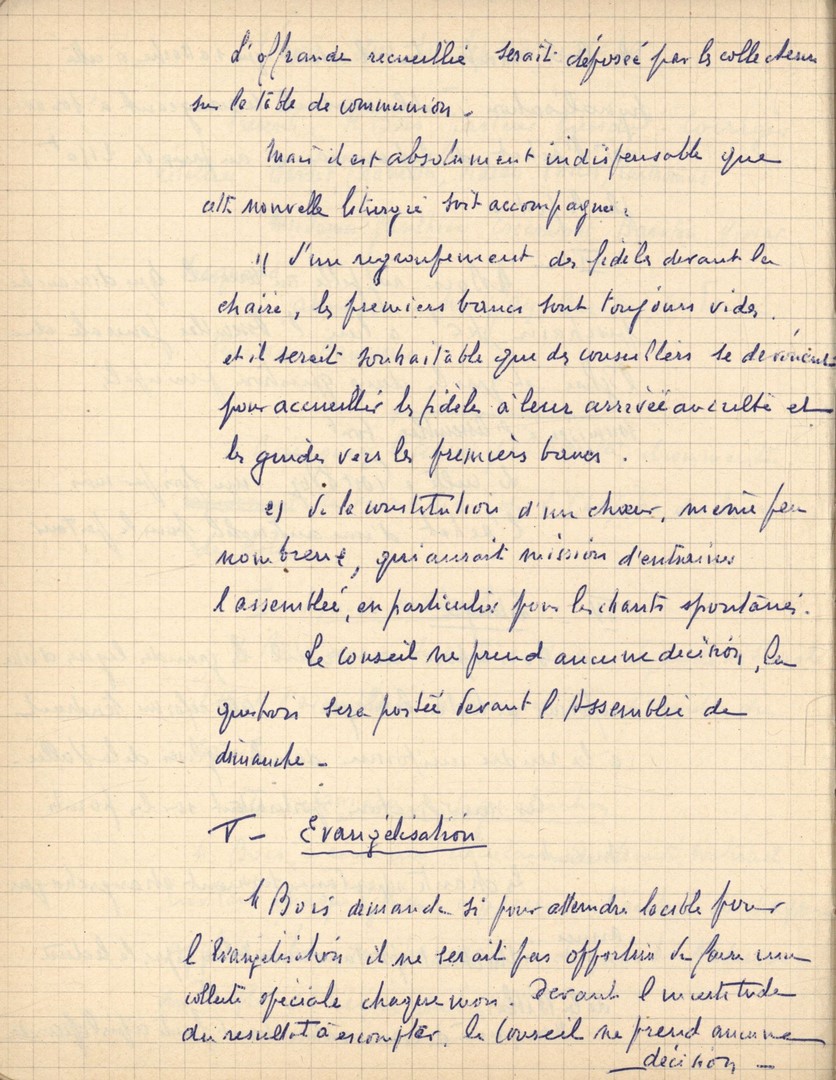 L'offrande recueillie serait déposée par les collecteurs
sur la table de communion.
Mais il est absolument indispensable que
cette nouvelle liturgie soit accompagnée :
1) d'un regroupement des fidèles devant la
chaire, les premiers bancs sont toujours vides.
et il serait souhaitable que des conseillers se dévouent
pour accueillir les fidèles à leur arrivée au culte et
les guider vers les premiers bancs.
2) de la constitution d'un chœur, même peu
nombreux, qui aurait mission d'entraîner
l'assemblée, en particulier pour les chants spontanés.
Le Conseil ne prend aucune décision, la
question sera portée devant l'Assemblée de
dimanche -
V - Evangélisation
M Bois demande si pour atteindre la cible pour
l'Evangélisation il ne serait pas opportun de faire une
collecte spéciale chaque mois. Devant l'incertitude
du resultat à escompter, le Conseil ne prend aucune
décision -